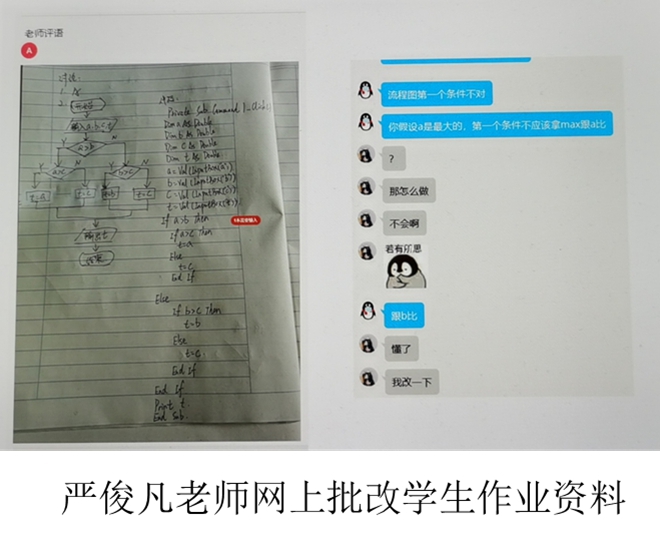 老师评语
A
开始
输入a.b.c.t
a>b
Y
N
a>c
b>c
t=a
t=c
t=b
t=c
输出t
结束
Private Sub Command1_Click()
Dim a As Double
Dim b As Double
Dim c As Double
Dim t As Double
a=Val(InputBox(a))
b=Val(InputBox(b))
c=Val(InputBox(c))
If a>b Then
If a>c Then
t=a
Else
t=c
End If
Else
If b>c Then
t=b
Else
t=c
End If
End If
Print t
End Sub
流程图第一个条件不对
你假设a是最大的，第一个条件不应该拿max跟a比
?
那怎么做
不会啊
若有所思
跟b比
懂了
我改一下
严俊凡老师网上批改学生作业资料